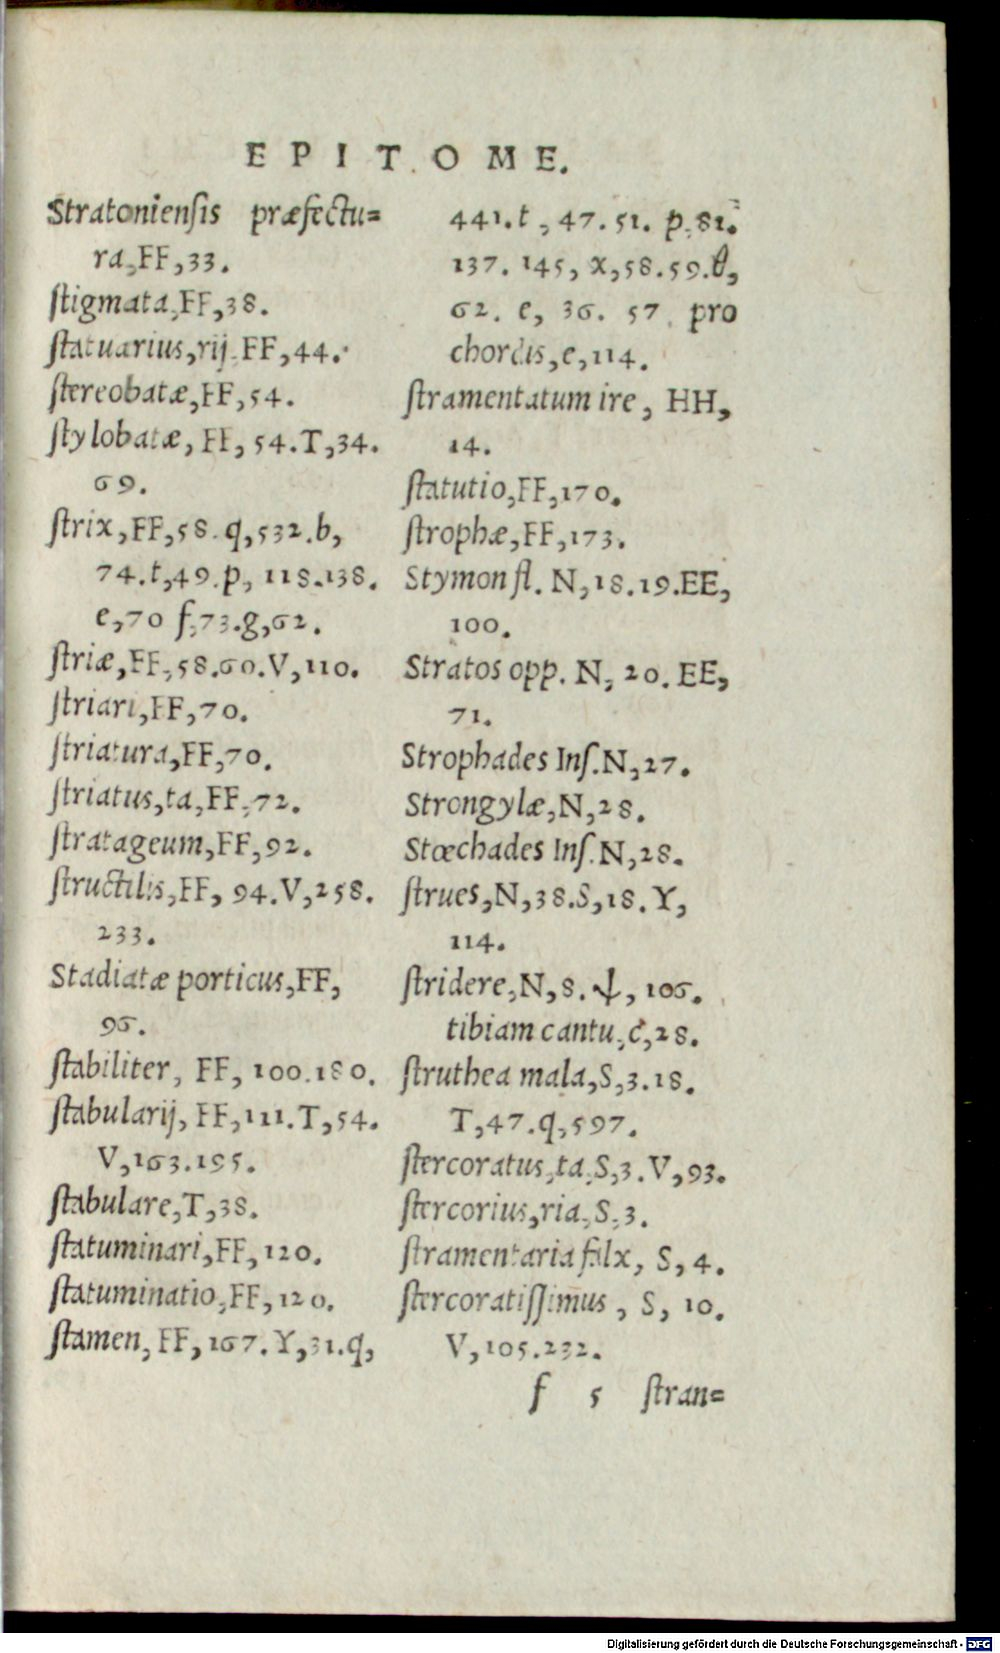 EPITOME.
Stratoniensis præfectu=
ra, FF, 33.
ſtigmata, FF, 38.
ſtatuarius, rij. FF, 44.
ſtereobatæ, FF, 54.
ſtylobatæ, FF, 54. T, 34.
69.
ſtrix, FF, 58. q, 532. b,
74. t, 49. p, 118. 138.
e, 70 f, 73. g, 62.
ſtriæ, FF, 58. 60. V, 110.
ſtriari, FF, 70.
ſtriatura, FF, 70.
ſtriatus, ta, FF, 72.
ſtratageum, FF, 92.
ſtructilis, FF, 94. V, 258.
233.
Stadiatæ porticus, FF,
96.
ſtabiliter, FF, 100. 180.
ſtabularij, FF, 111. T, 54.
V, 163. 195.
ſtabulare, T, 38.
ſtatuminari, FF, 120.
ſtatuminatio, FF, 120.
ſtamen, FF, 167. Y, 31. q,
441. t, 47. 51. p. 81.
137. 145, x, 58. 59. θ,
62. e, 36. 57 pro
chordis, e, 114.
ſtramentatum ire, HH,
14.
ſtatutio, FF, 170.
ſtrophæ, FF, 173.
Stymon fl. N, 18. 19. EE,
100.
Stratos opp. N, 20. EE,
71.
Strophades Inſ. N, 27.
Strongylæ, N, 28.
Stœchades Inſ. N, 28.
ſtrues, N, 38. S, 18. Y,
114.
ſtridere, N, 8. ψ, 106.
tibiam cantu, c, 28.
ſtruthea mala, S, 3. 18.
T, 47. q, 597.
ſtercoratus, ta, S, 3. V, 93.
ſtercorius, ria, S, 3.
ſtramentaria falx, S, 4.
ſtercoratiſſimus, S, 10.
V, 105. 232.
f 5 ſtran=
Digitalisierung gefördert durch die Deutsche Forschungsgemeinschaft - DFG